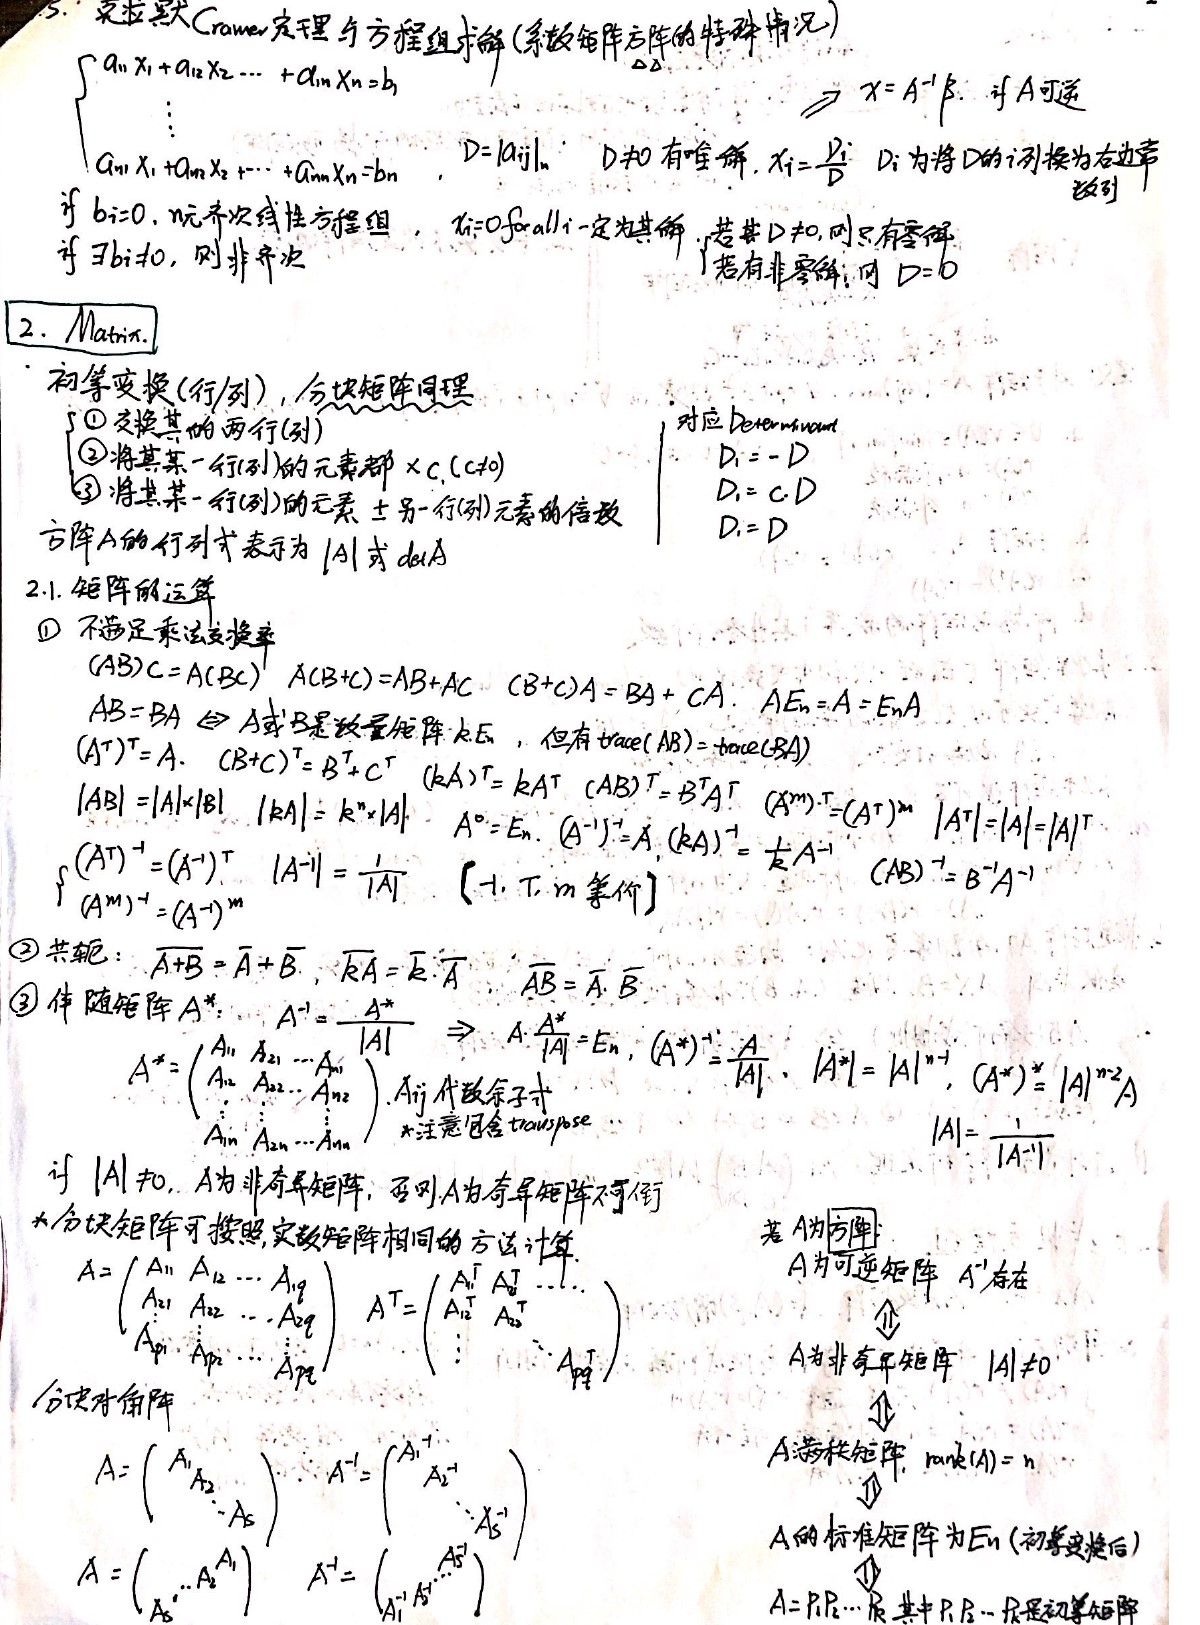 5. 克拉默Cramer定理与方程组求解(系数矩阵方阵的特殊情况)
a₁₁x₁+a₁₂x₂ ⋯ +a₁ₙxₙ=b₁
⋮
aₙ₁x₁+aₙ₂x₂+⋯+aₙₙxₙ=bₙ , D=|aij|ₙ D≠0 有唯一解. xi=Di/D Di为将D的i列换为右边常数列
⇒ x=A⁻¹β. if A可逆
if bi=0, n元齐次线性方程组, xi=0 for all i 一定为其解. 若其D≠0, 则只有零解
if ∃bi≠0, 则非齐次 若有非零解; 则 D=0
2. Matrix.
初等变换(行/列), 分块矩阵同理
① 交换其的两行(列)
② 将其某一行(列)的元素都×c, (c≠0)
③ 将其某一行(列)的元素±另一行(列)元素的倍数
对应Determinant
D₁=-D
D₁=c.D
D₁=D
方阵A的行列式表示为 |A| 或 detA
2.1. 矩阵的运算
① 不满足乘法交换率
(AB)C=A(BC) A(B+C)=AB+AC (B+C)A=BA+CA. AEn=A=EnA
AB=BA ⇔ A或B是数量矩阵k.En, 但有trace(AB)=trace(BA)
(Aᵀ)ᵀ=A. (B+C)ᵀ=Bᵀ+Cᵀ (kA)ᵀ=kAᵀ (AB)ᵀ=BᵀAᵀ. (Aᵐ)ᵀ=(Aᵀ)ᵐ |Aᵀ|=|A|=|A|ᵀ
|AB|=|A|×|B| |kA|=kⁿ×|A|. A⁰=En. (A⁻¹)⁻¹=A, (kA)⁻¹=1/k A⁻¹ (AB)⁻¹=B⁻¹A⁻¹
(Aᵀ)⁻¹=(A⁻¹)ᵀ |A⁻¹|=1/|A| [-1, T, m 等价]
(Aᵐ)⁻¹=(A⁻¹)ᵐ
② 共轭: A̅+̅B̅=A̅+B̅, k̅A̅=k̅.A̅ A̅B̅=A̅.B̅
③ 伴随矩阵A*: A⁻¹=A*/|A| ⇒ A.A*/|A|=En, (A*)⁻¹=A/|A|. |A*|=|A|ⁿ⁻¹, (A*)*=|A|ⁿ⁻²A
A*=(A₁₁ A₂₁ ⋯ Aₙ₁
A₁₂ A₂₂ ⋯ Aₙ₂
⋮ ⋮ ⋮
A₁ₙ A₂ₙ ⋯ Aₙₙ). Aij代数余子式
*注意包含transpose
|A|=1/|A⁻¹|
if |A|≠0, A为非奇异矩阵, 否则A为奇异矩阵不可逆
*分块矩阵可按照实数矩阵相同的方法计算.
A=(A₁₁ A₁₂ ⋯ A₁q
A₂₁ A₂₂ ⋯ A₂q
⋮ ⋮ ⋮
Ap₁ Ap₂ ⋯ Apq) Aᵀ=(A₁₁ᵀ A₂₁ᵀ ⋯⋯
A₁₂ᵀ A₂₂ᵀ
⋮ ⋱ Apqᵀ)
分块对角阵
A=(A₁ A₂ ⋱ As) A⁻¹=(A₁⁻¹ A₂⁻¹ ⋱ As⁻¹)
A=(As ⋰ A₂ A₁) A⁻¹=(A₁⁻¹ A₂⁻¹ ⋰ As⁻¹)
若A为方阵:
A为可逆矩阵 A⁻¹存在
⇕
A为非奇异矩阵 |A|≠0
⇕
A满秩矩阵, rank(A)=n
⇕
A的标准矩阵为En(初等变换后)
⇕
A=P₁P₂⋯Pk 其中P₁P₂⋯Pk是初等矩阵